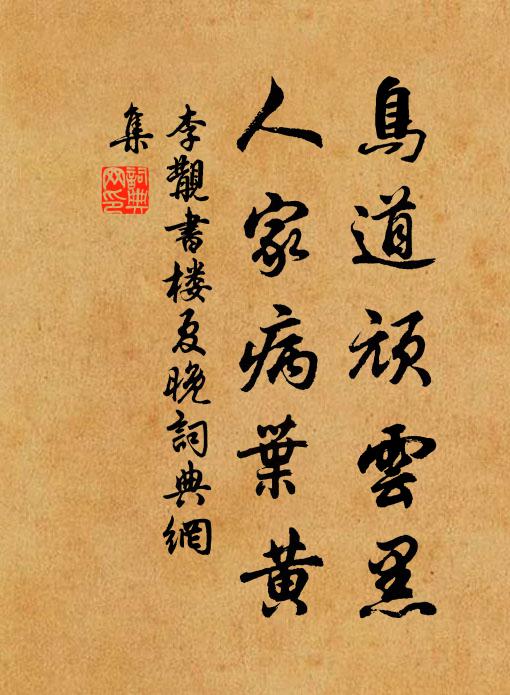 鳥道頑雲黑
人家病葉黃
李覯書楼夏晚詞典網
集
詞典
网印